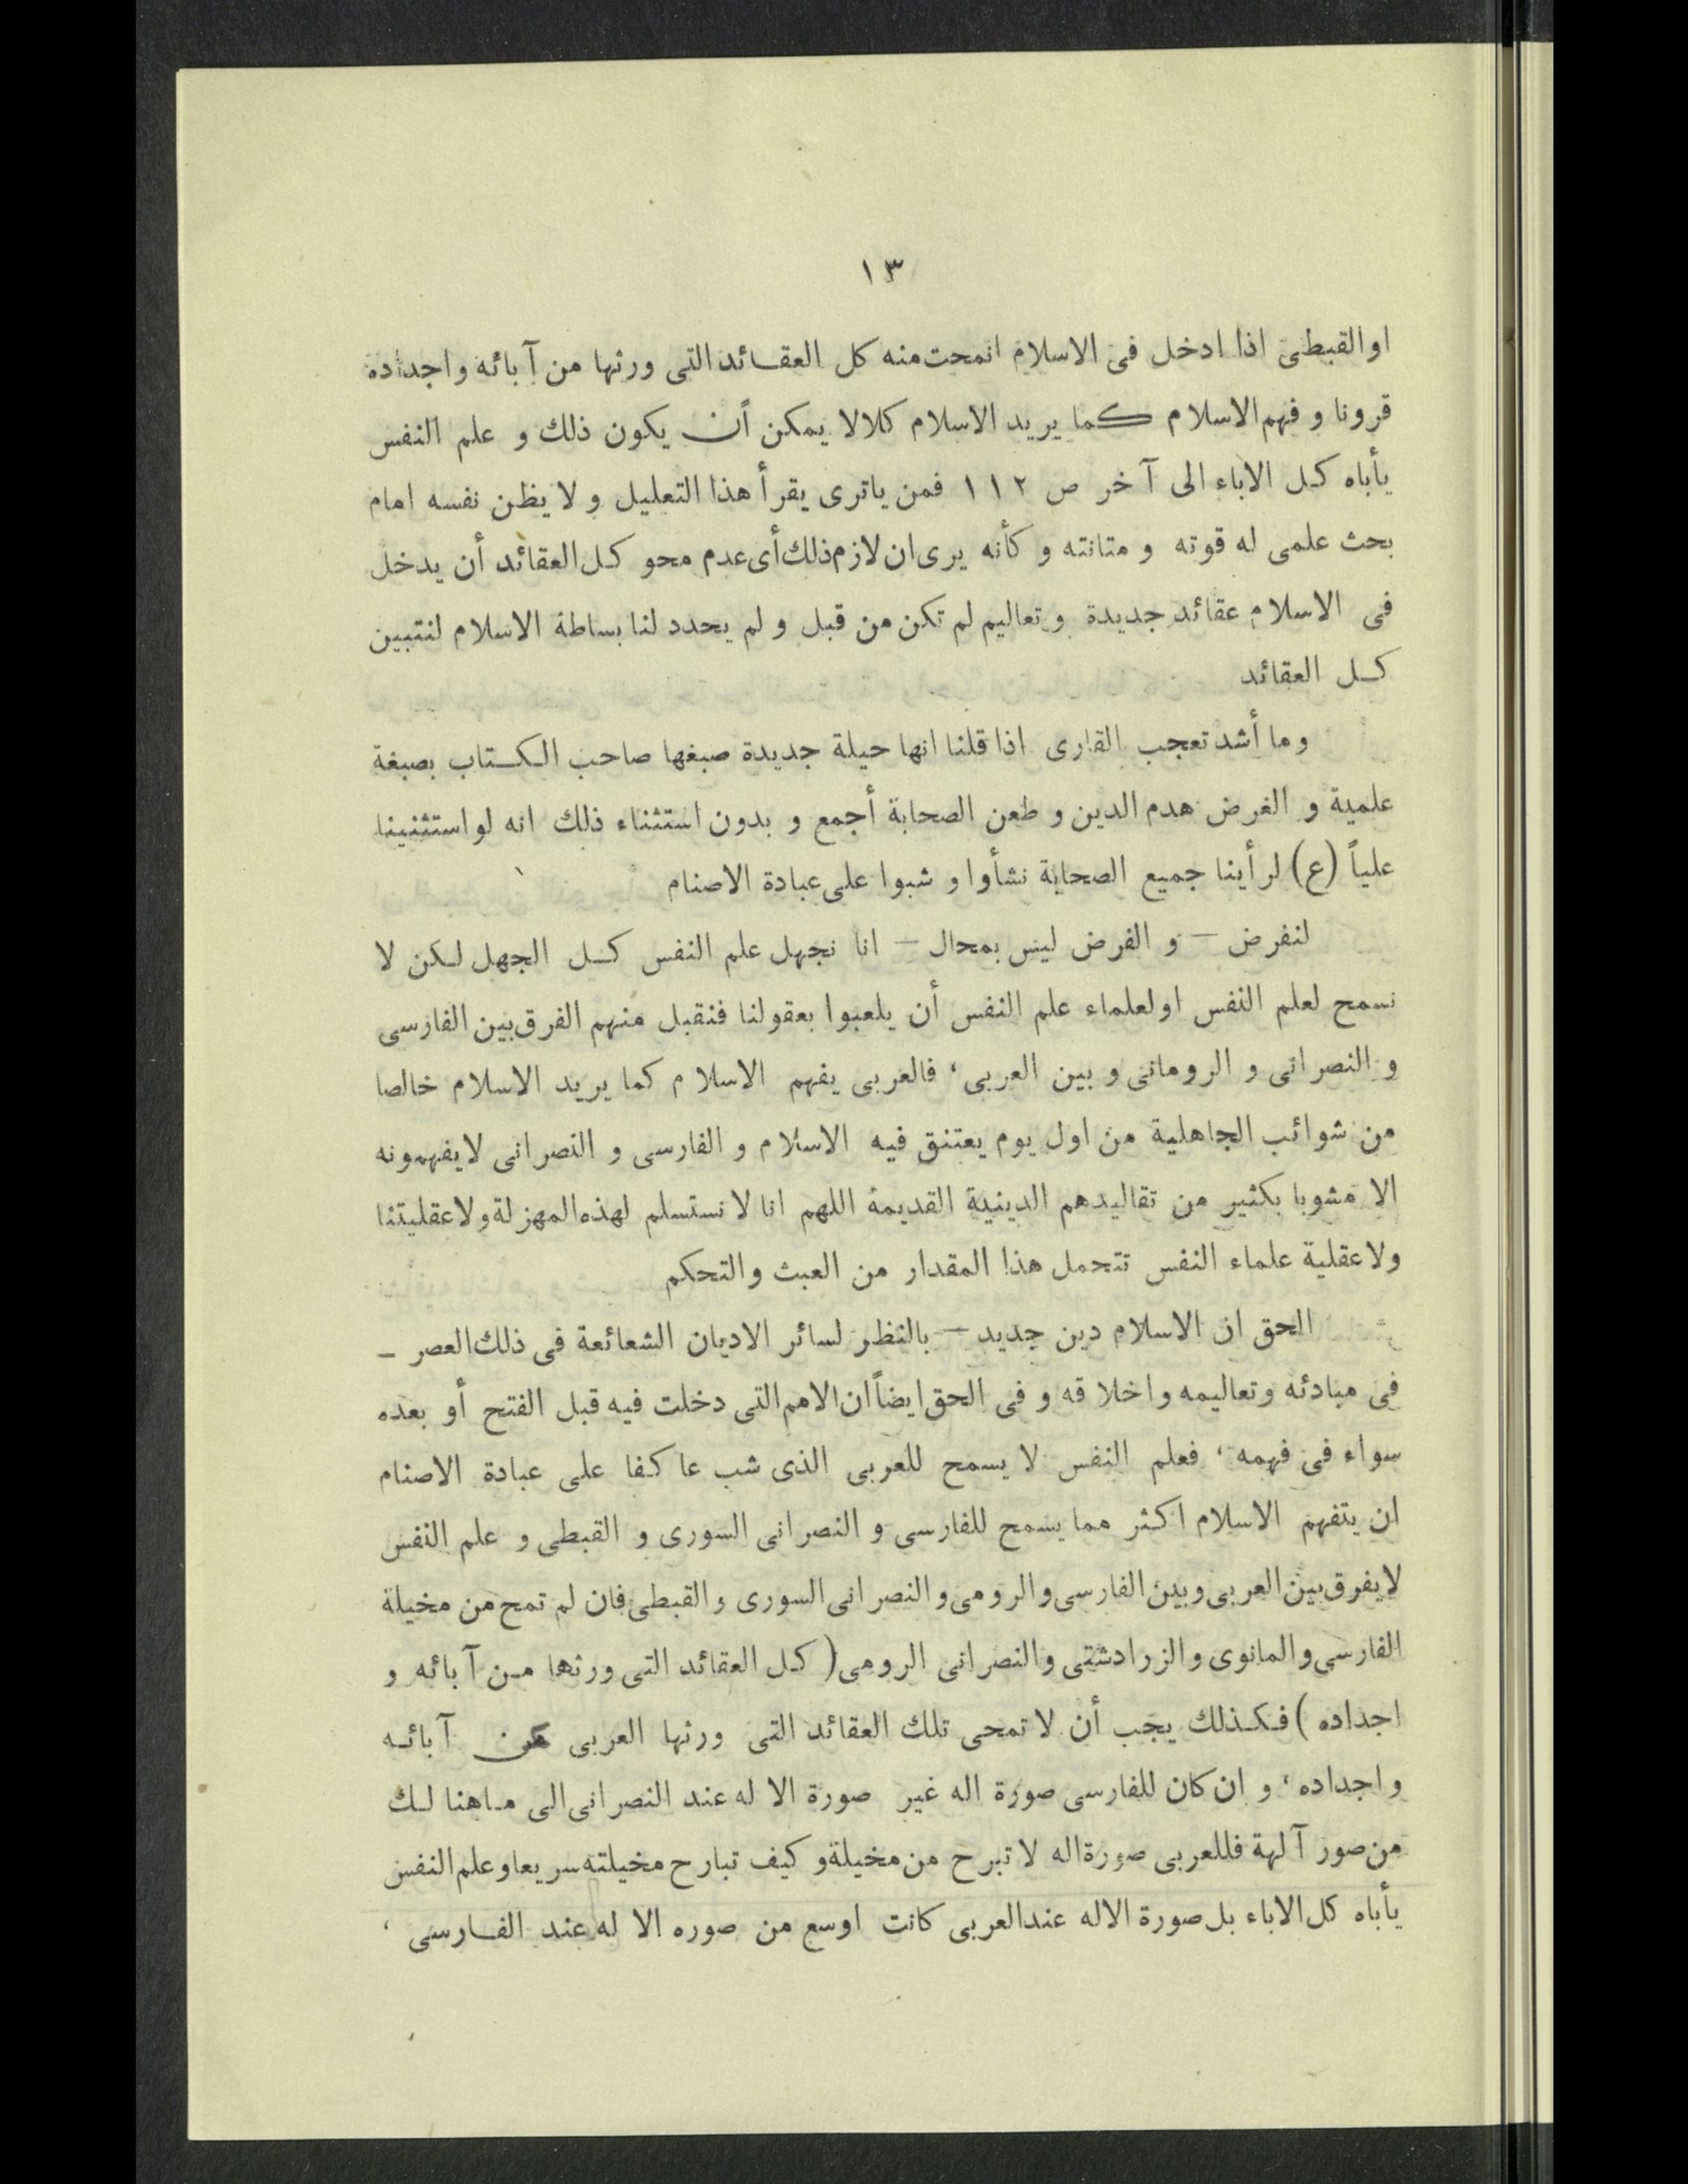 ١٣
او القبطى اذا ادخل فى الاسلام انمحت منه كل العقائد التى ورثها من آبائه و اجداده
قرونا و فهم الاسلام كما يريد الاسلام كلا لا يمكن أن يكون ذلك و علم النفس
يأباه كل الاباء الى آخر ص ١١٢ فمن ياترى يقرأ هذا التعليل و لا يظن نفسه امام
بحث علمى له قوته و متانته و كأنه يرى ان لازم ذلك أى عدم محو كل العقائد أن يدخل
فى الاسلام عقائد جديدة و تعاليم لم تكن من قبل و لم يحدد لنا بساطة الاسلام لنتبين
كل العقائد
و ما أشد تعجب القارى اذا قلنا انها حيلة جديدة صبغها صاحب الكتاب بصبغة
علمية و الغرض هدم الدين و طعن الصحابة أجمع و بدون استثناء ذلك انه لو استثنينا
علياً (ع) لرأينا جميع الصحابة نشأوا و شبوا على عبادة الاصنام
لنفرض – و الفرض ليس بمحال – انا نجهل علم النفس كل الجهل لكن لا
نسمح لعلم النفس او لعلماء علم النفس أن يلعبوا بعقولنا فنقبل منهم الفرق بين الفارسى
و النصرانى و الرومانى و بين العربى ، فالعربى يفهم الاسلام كما يريد الاسلام خالصا
من شوائب الجاهلية من اول يوم يعتنق فيه الاسلام و الفارسى و النصرانى لا يفهمونه
الا مشوبا بكثير من تقاليدهم الدينية القديمة اللهم انا لا نستسلم لهذه المهزلة و لا عقليتنا
ولا عقلية علماء النفس تتحمل هذا المقدار من العبث والتحكم
الحق ان الاسلام دين جديد – بالنظر لسائر الاديان الشعائعة فى ذلك العصر –
فى مبادئه وتعاليمه واخلا قه و فى الحق ايضاً ان الامم التى دخلت فيه قبل الفتح أو بعده
سواء فى فهمه ، فعلم النفس لا يسمح للعربى الذى شب عا كفا على عبادة الاصنام
ان يتفهم الاسلام اكثر مما يسمح للفارسى و النصرانى السورى و القبطى و علم النفس
لا يفرق بين العربى و بين الفارسى و الرومى و النصرانى السورى و القبطى فان لم تمح من مخيلة
الفارسى و المانوى و الزرادشتى والنصرانى الرومى ( كل العقائد التى ورثها من آبائه و
اجداده ) فكذلك يجب أن لا تمحى تلك العقائد التى ورثها العربى من آبائه
و اجداده ، و ان كان للفارسى صورة اله غير صورة الا له عند النصرانى الى ماهنا لك
من صور آلهة فللعربى صورة اله لا تبرح من مخيلة و كيف تبارح مخيلته سريعا و علم النفس
يأباه كل الاباء بل صورة الاله عند العربى كانت اوسع من صوره الا له عند الفارسى ،